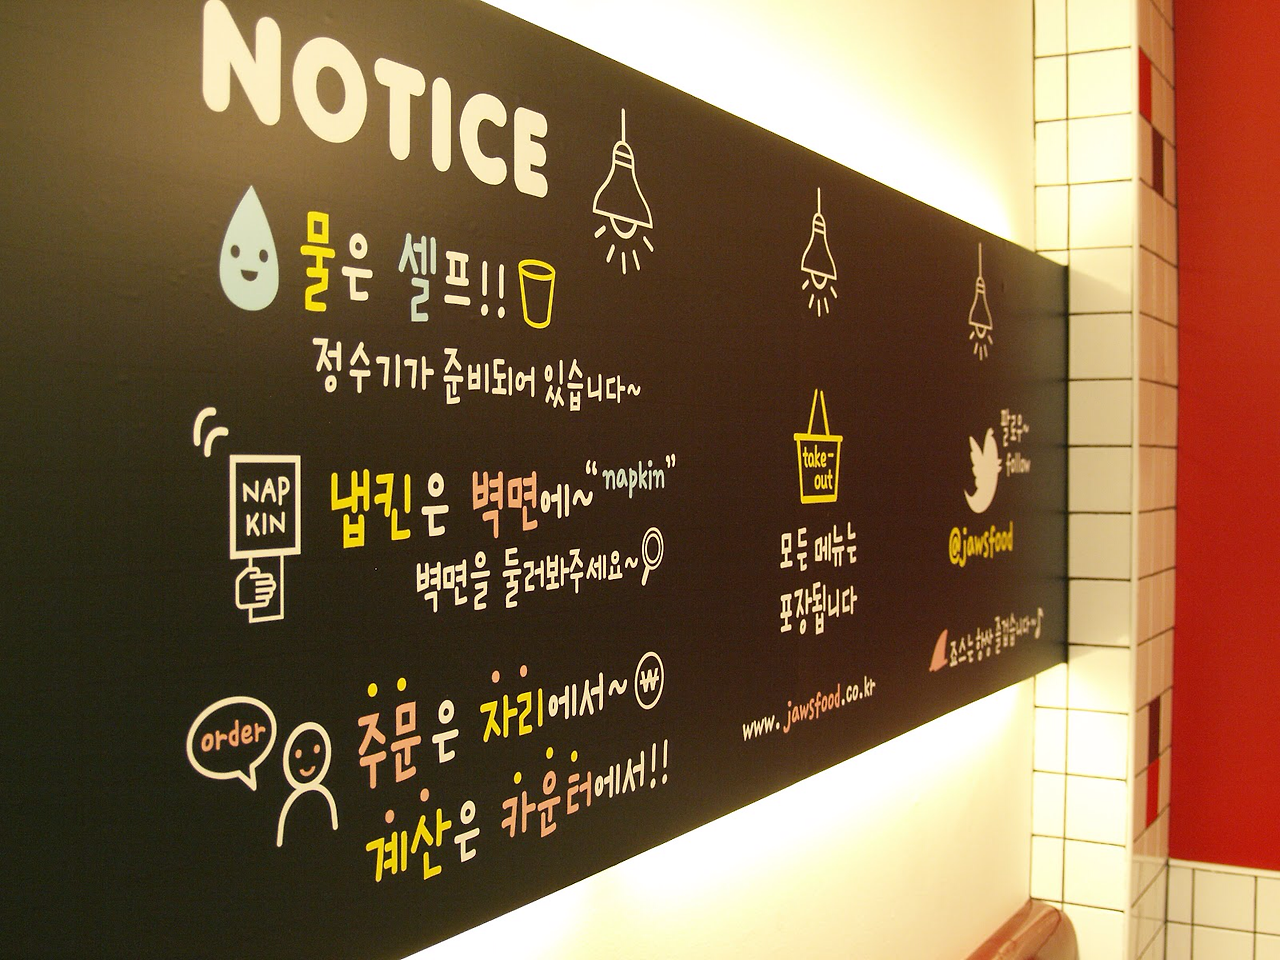 NOTICE
물은 셀프!!
정수기가 준비되어 있습니다~
NAP
KIN
냅킨은 벽면에~ “napkin”
벽면을 둘러봐주세요~
order
주문은 자리에서~ ₩
계산은 카운터에서!!
take-
out
모든 메뉴는
포장됩니다
www.jawsfood.co.kr
팔로우~
follow
@jawsfood
죠스는 항상 즐겁습니다~♪